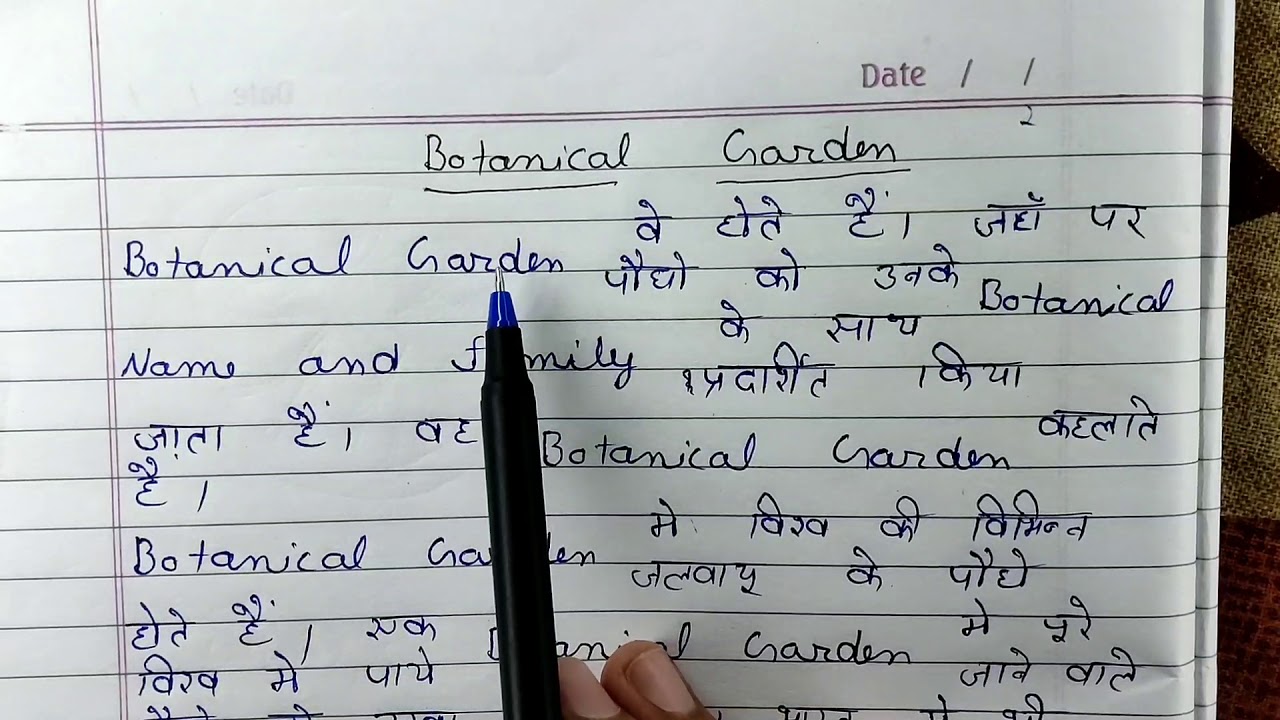 Date / /
2
Botanical Garden
Botanical Garden वे होते हैं। जहाँ पर
पौधो को उनके Botanical
Name and family के साथ प्रदार्शित किया
जाता हैं। वह Botanical Garden कहलाते
है।
Botanical Garden मे विश्व की विभिन्न
जलवायु के पौधे
होते हैं। एक Botanical Garden मे पूरे
विश्व मे पाये जाने वाले